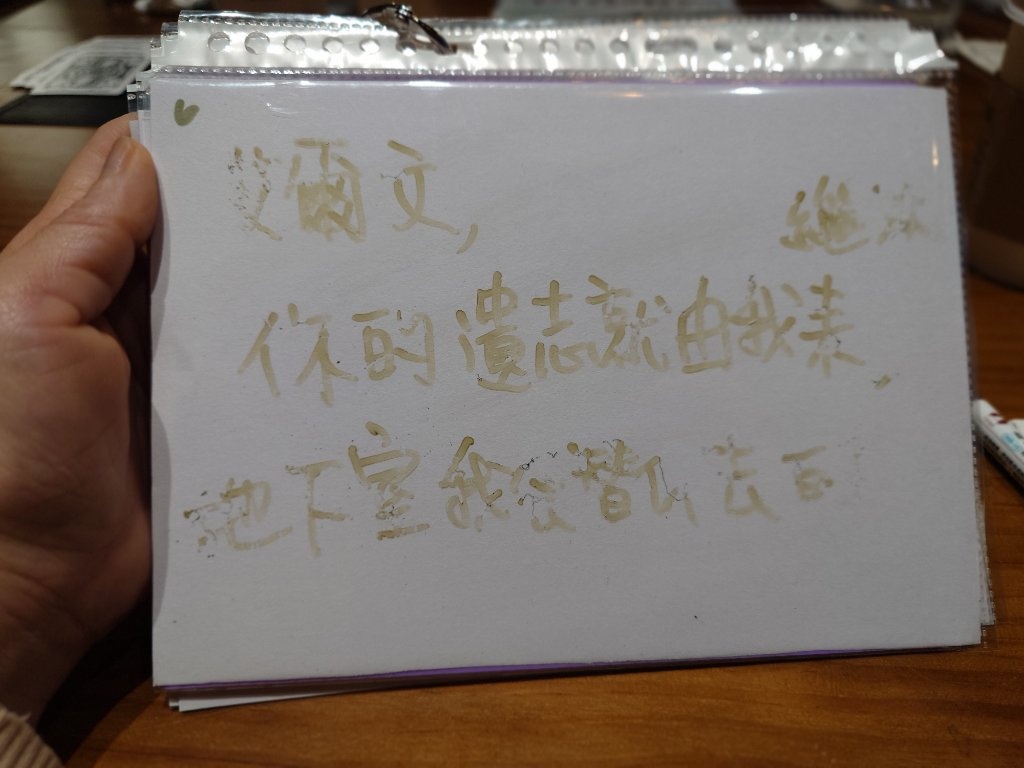 艾爾文, 繼承
你的遺志就由我來,
地下室我會替你去